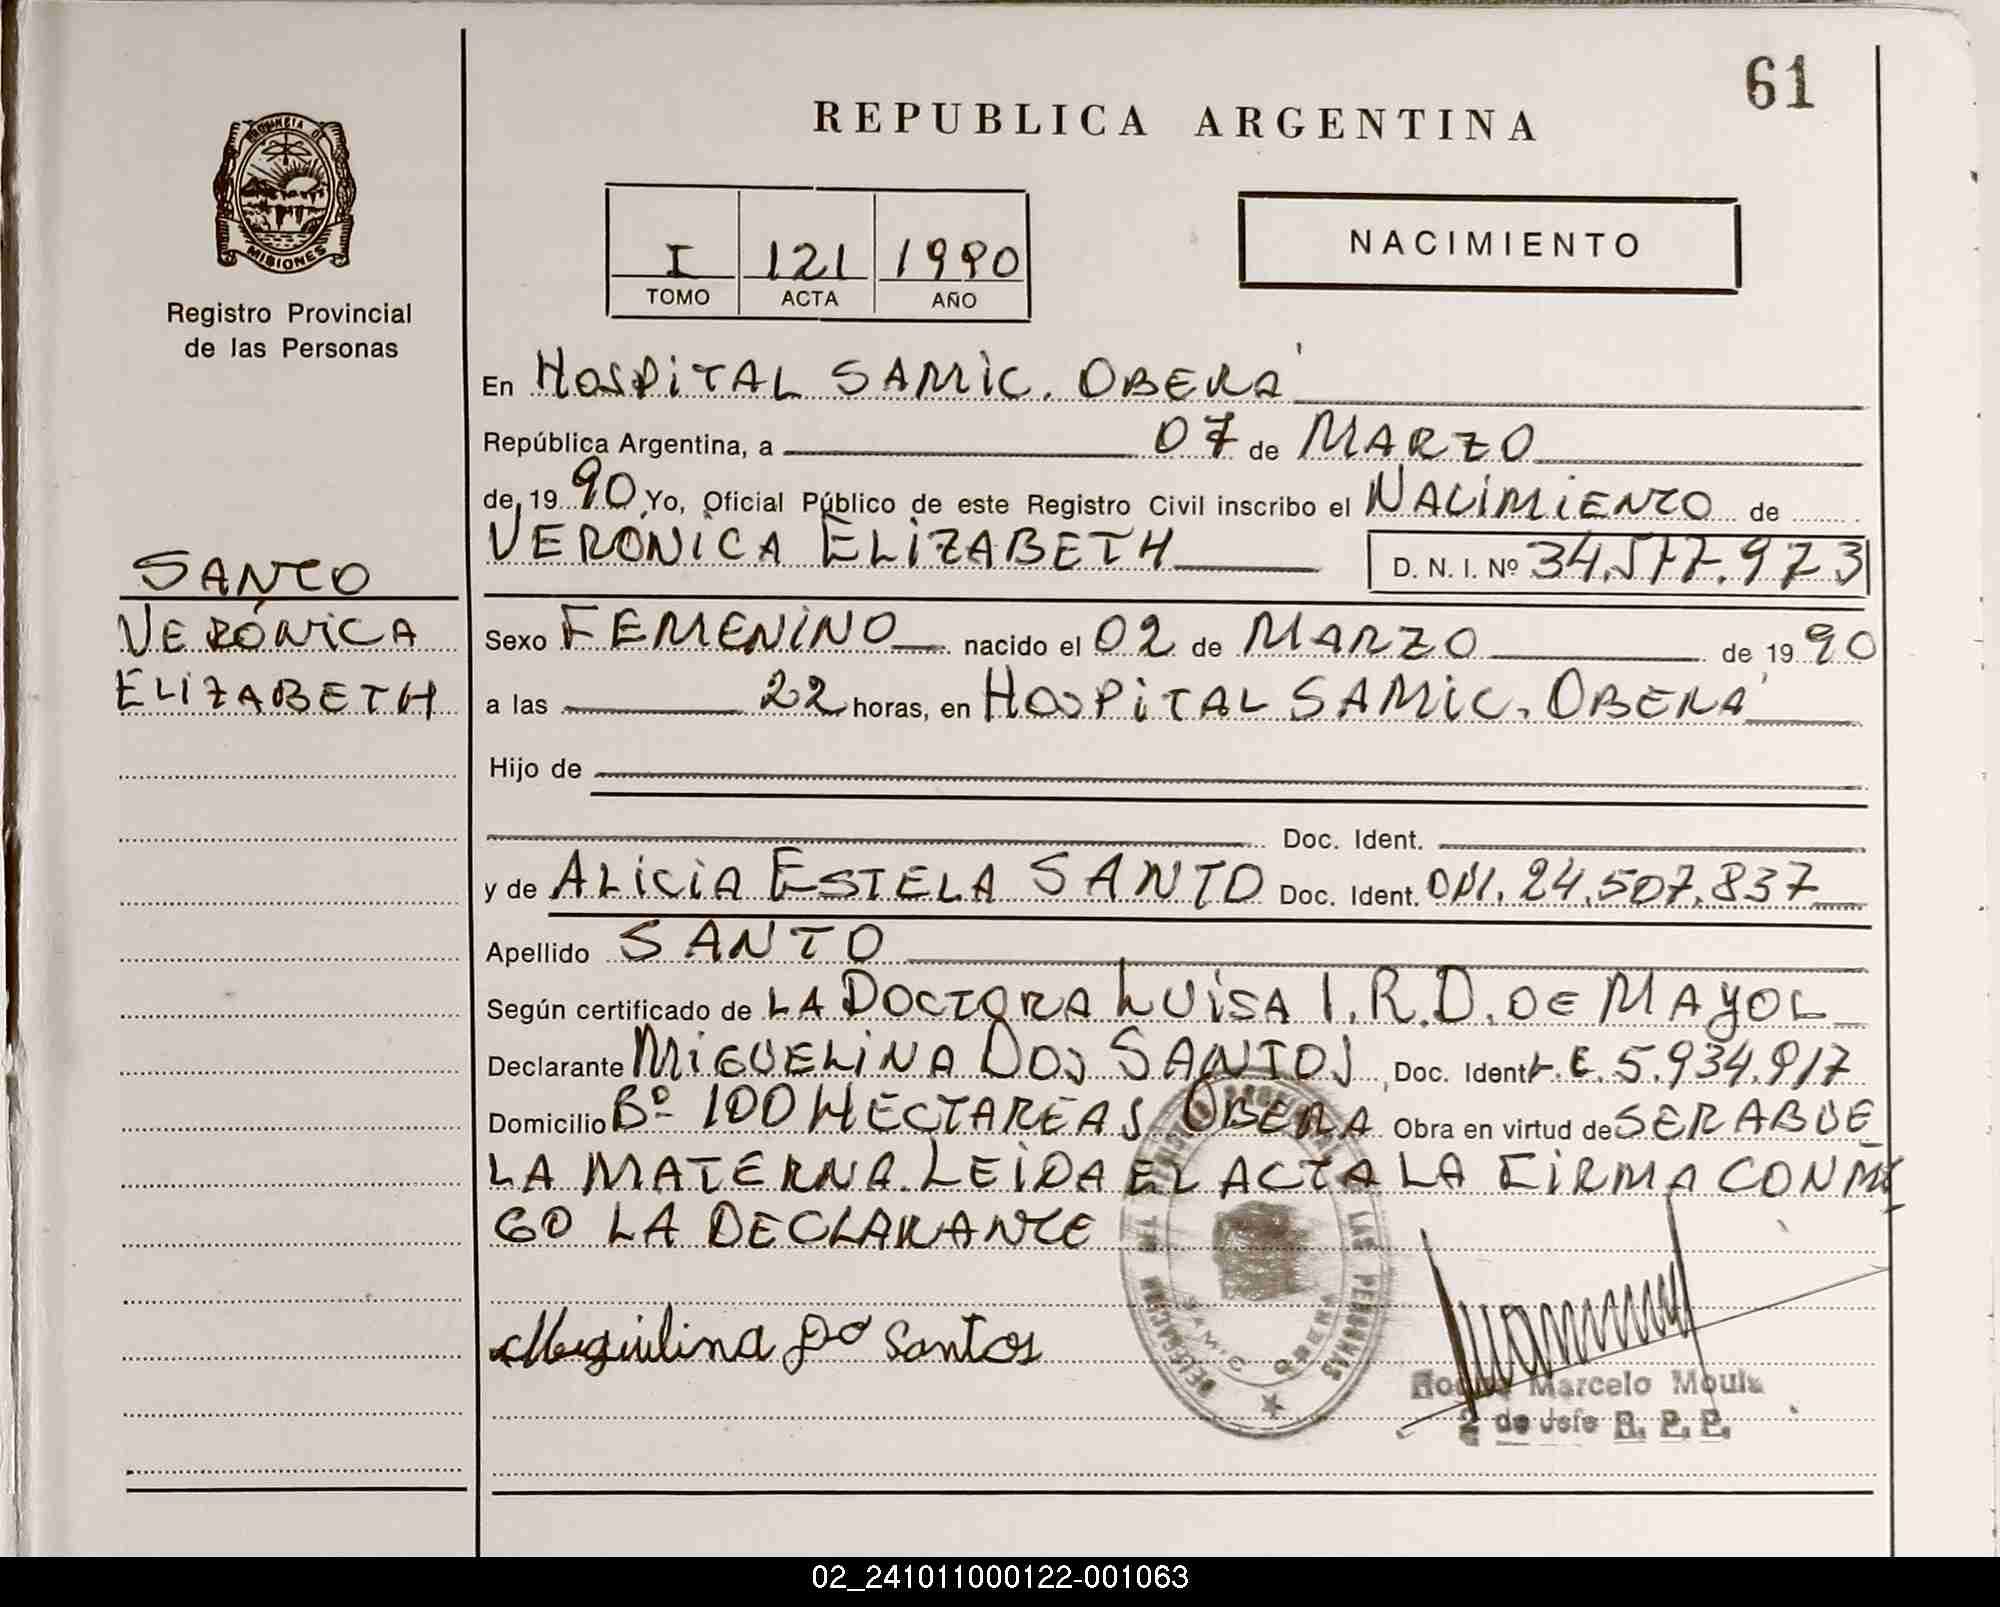 61
REPUBLICA ARGENTINA
PROVINCIA DE
MISIONES
Registro Provincial
de las Personas
I 121 1990
TOMO ACTA AÑO
NACIMIENTO
En HOSPITAL SAMIC. OBERÁ
República Argentina, a 07 de MARZO
de 19 90 Yo, Oficial Público de este Registro Civil inscribo el NACIMIENTO de
VERÓNICA ELIZABETH D. N. I. Nº 34.577.973
SANTO
VERÓNICA
ELIZABETH
Sexo FEMENINO nacido el 02 de MARZO de 19 90
a las 22 horas, en HOSPITAL SAMIC. OBERÁ
Hijo de
Doc. Ident.
y de ALICIA ESTELA SANTO Doc. Ident. DNI. 24.507.837
Apellido SANTO
Según certificado de LA DOCTORA LUISA I. R. D. DE MAYOL
Declarante MIGUELINA DOS SANTOS, Doc. Ident L.C. 5.934.917
Domicilio Bº 100 HECTAREAS OBERA Obra en virtud de SER ABUE
LA MATERNA. LEIDA EL ACTA LA FIRMA CONMI
GO LA DECLARANTE
LAS PERSONAS
DELEGACION
SAMIC OBERA
Miguilina Do Santos
Marcelo
2 de Jefe R. P. P.
02_241011000122-001063